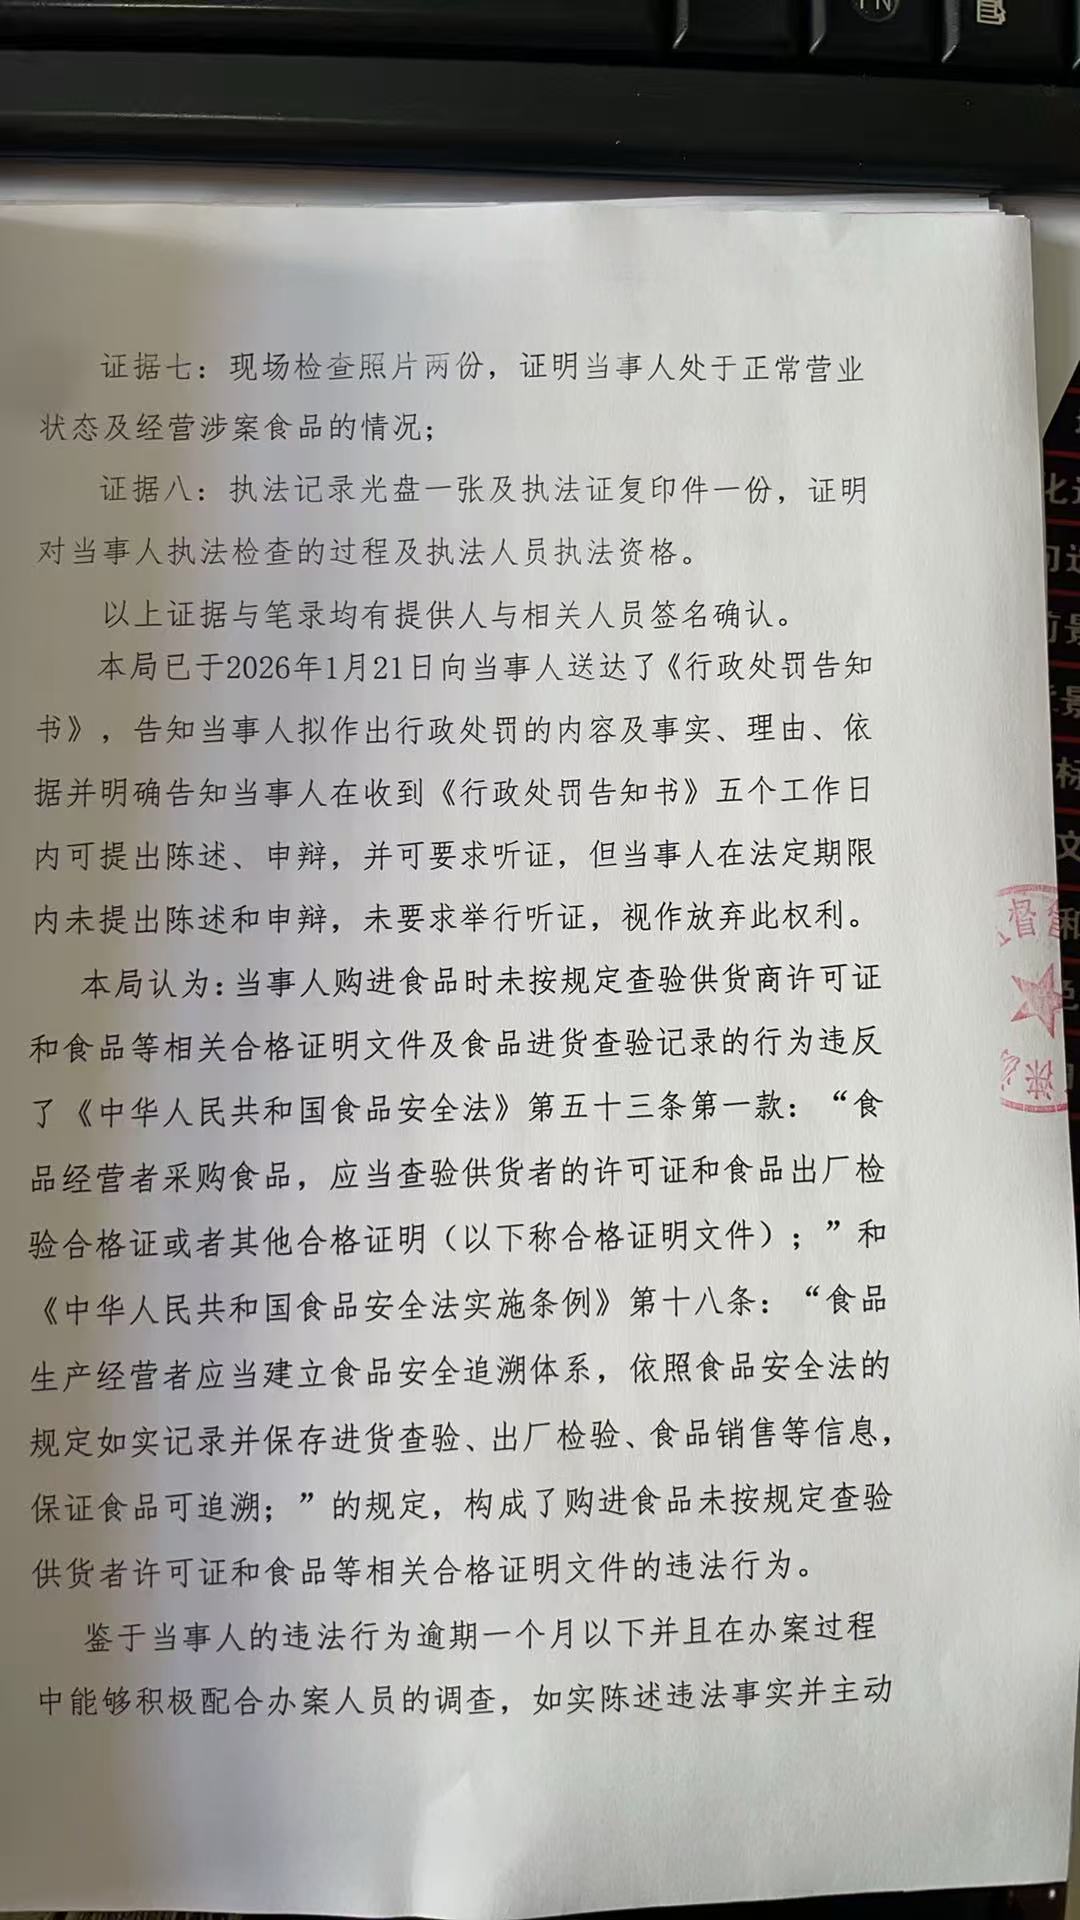 FN
证据七：现场检查照片两份，证明当事人处于正常营业
状态及经营涉案食品的情况；
证据八：执法记录光盘一张及执法证复印件一份，证明
对当事人执法检查的过程及执法人员执法资格。
以上证据与笔录均有提供人与相关人员签名确认。
本局已于2026年1月21日向当事人送达了《行政处罚告知
书》，告知当事人拟作出行政处罚的内容及事实、理由、依
据并明确告知当事人在收到《行政处罚告知书》五个工作日
内可提出陈述、申辩，并可要求听证，但当事人在法定期限
内未提出陈述和申辩，未要求举行听证，视作放弃此权利。
本局认为：当事人购进食品时未按规定查验供货商许可证
和食品等相关合格证明文件及食品进货查验记录的行为违反
了《中华人民共和国食品安全法》第五十三条第一款：“食
品经营者采购食品，应当查验供货者的许可证和食品出厂检
验合格证或者其他合格证明（以下称合格证明文件）；”和
《中华人民共和国食品安全法实施条例》第十八条：“食品
生产经营者应当建立食品安全追溯体系，依照食品安全法的
规定如实记录并保存进货查验、出厂检验、食品销售等信息，
保证食品可追溯；”的规定，构成了购进食品未按规定查验
供货者许可证和食品等相关合格证明文件的违法行为。
鉴于当事人的违法行为逾期一个月以下并且在办案过程
中能够积极配合办案人员的调查，如实陈述违法事实并主动
督